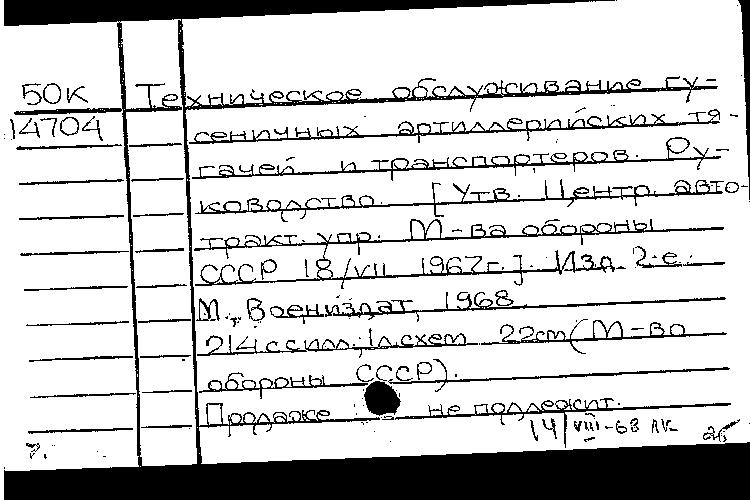 50К Техническое обслуживание гу-
14704 сеничных артиллерийских тя-
гачей и транспортеров. Ру-
ководство. [Утв. Центр. авто-
тракт. упр. М-ва обороны
СССР 18/VII 1967г.]. Изд. 2-е.
М., Воениздат, 1968
214 с с илл.; 1 л. схем 22cm (М-во
обороны СССР).
Продаже не подлежит.
14/VIII-68 лк